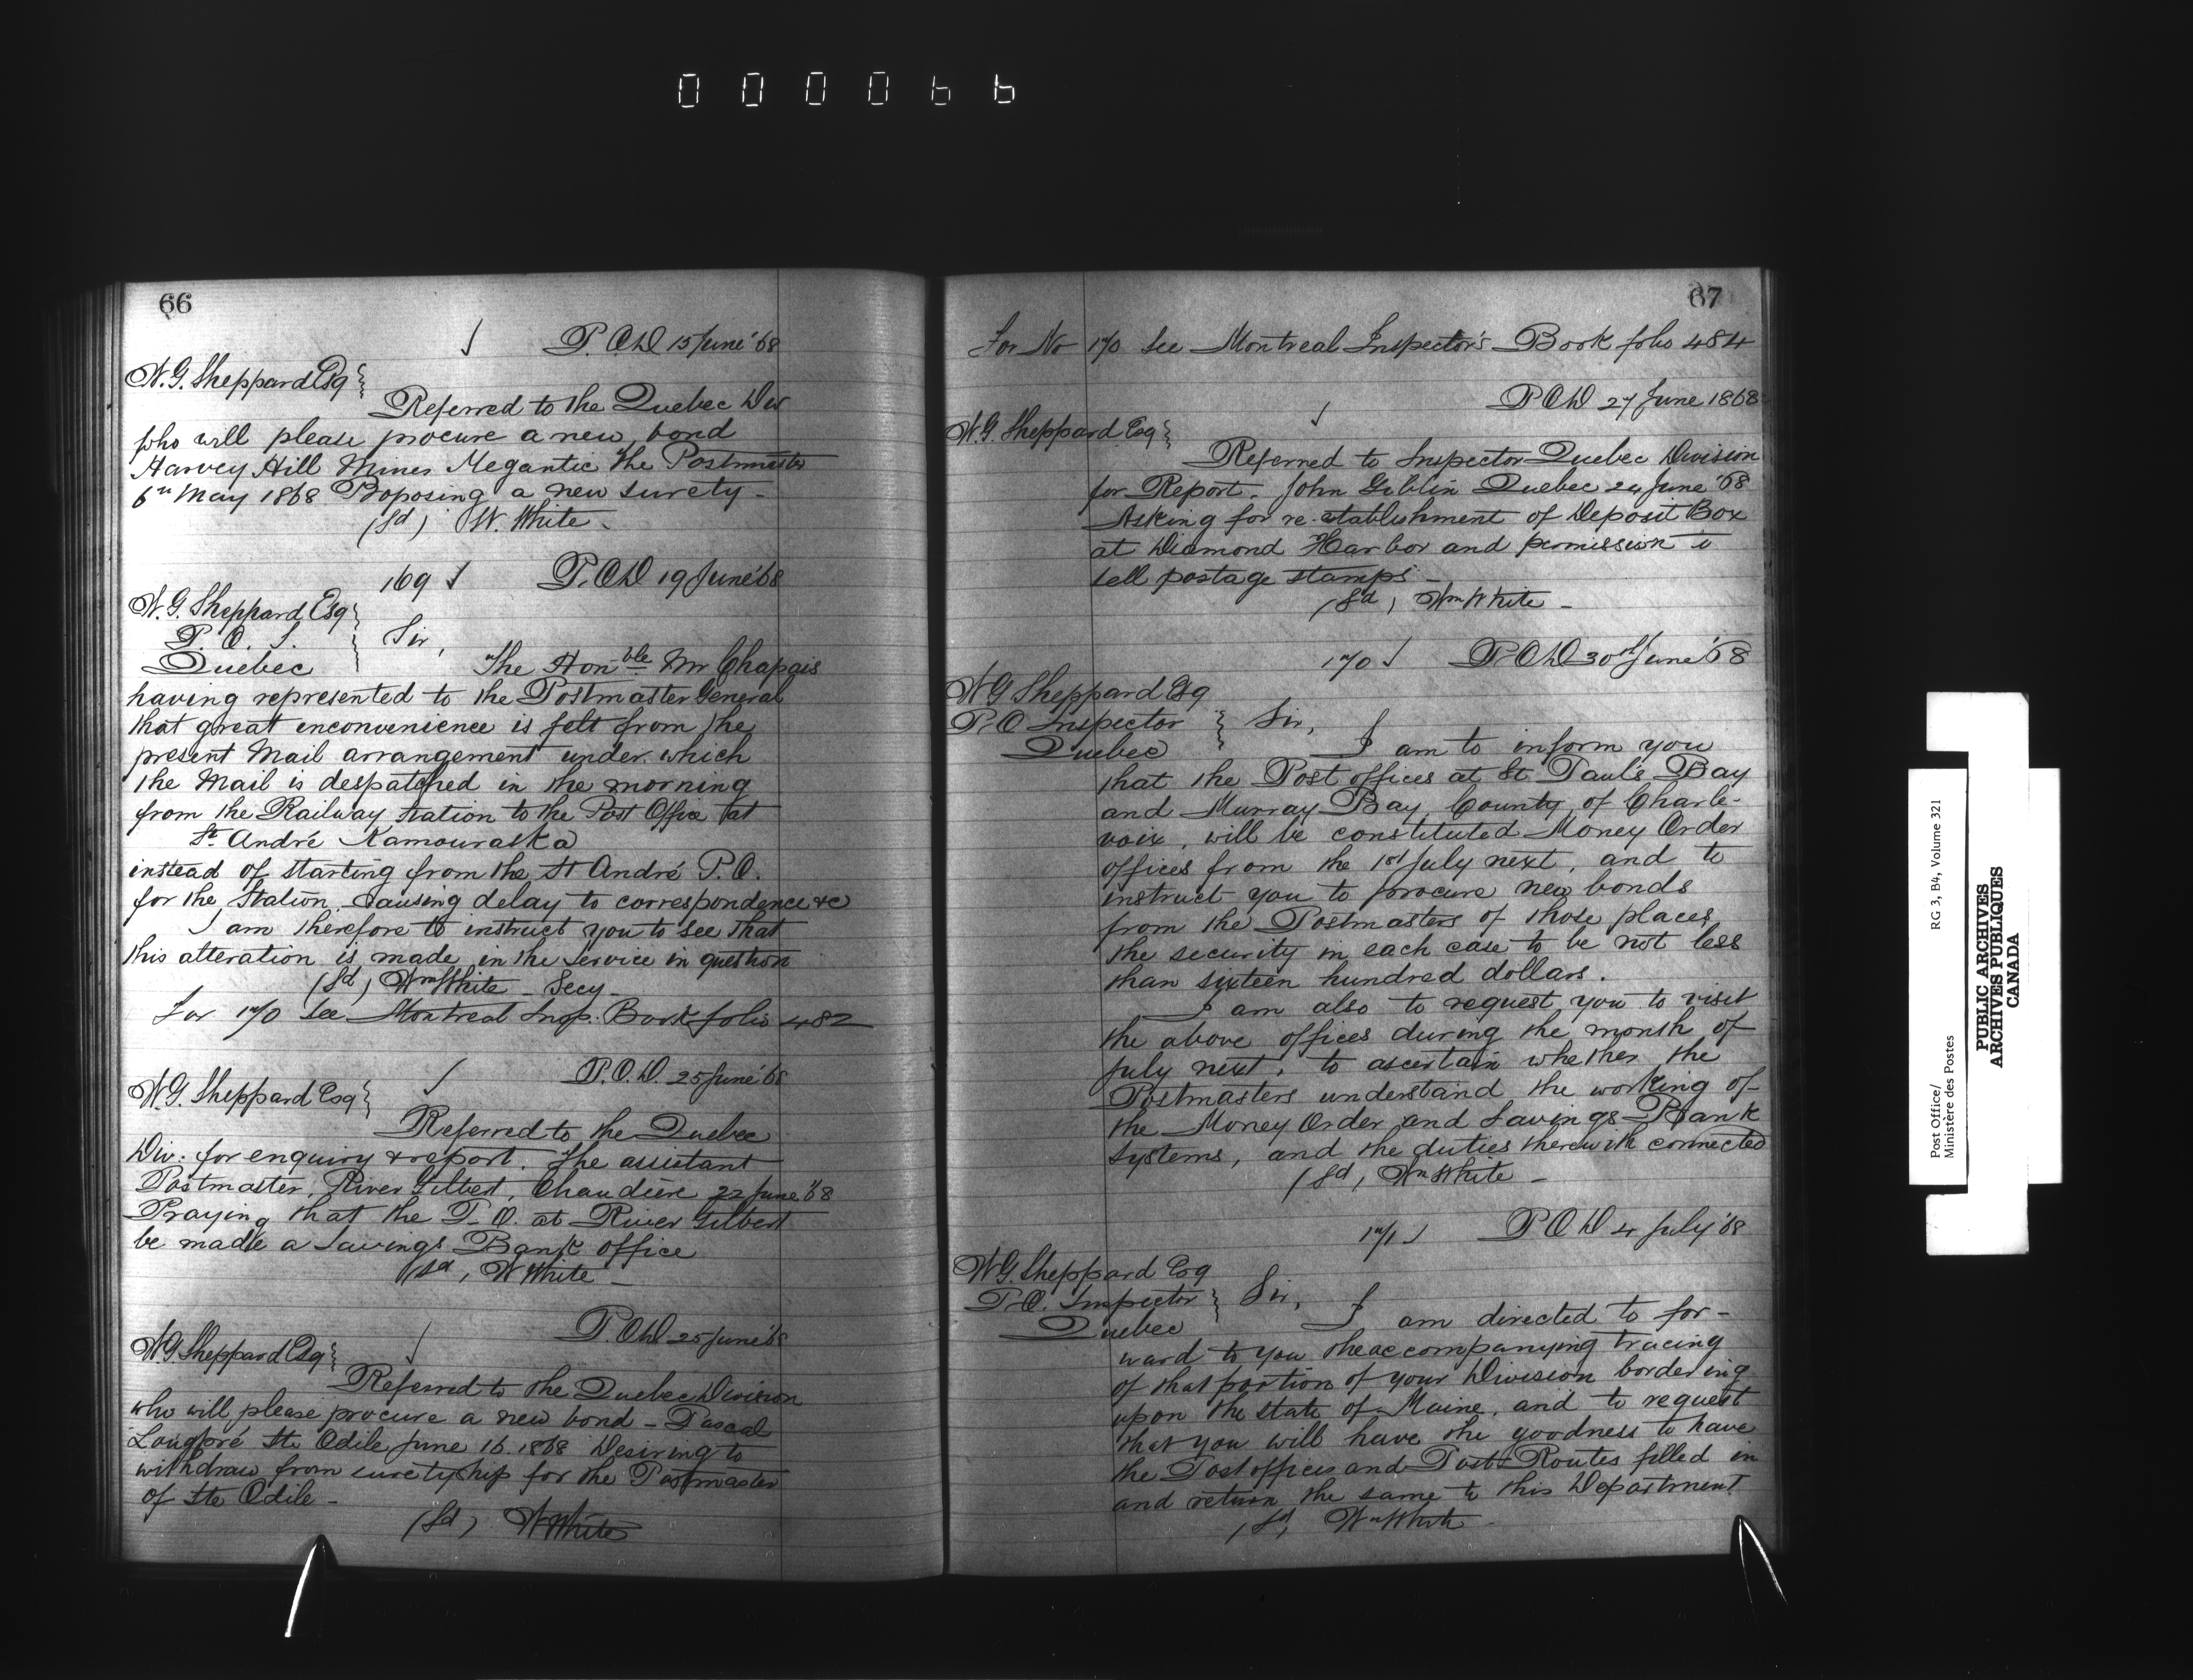 000066
66
P.O.D 15 June '68
W. G. Sheppard Esq
Referred to the Quebec Div
who will please procure a new bond
Harvey Hill Mines Megantic The Postmaster
6th May 1868 Proposing a new surety -
(Sd) W. White.
169 P.O.D 19 June '68
W. G. Sheppard Esq
P. O. I.
Quebec
Sir,
The Honble Mr Chapais
having represented to the Postmaster General
that great inconvenience is felt from the
present Mail arrangement under which
the Mail is despatched in the morning
from the Railway Station to the Post Office at
St André Kamouraska
instead of starting from the St André P.O.
for the Station causing delay to correspondence &c
I am therefore to instruct you to see that
this alteration is made in the service in question
(Sd) Wm White - Secy -
For 170 see Montreal Insp. Book folio 482
P.O.D. 25 June '68
W. G. Sheppard Esq
Referred to the Quebec
Div: for enquiry & report. The assistant
Postmaster, River Gilbert, Chaudière 22 June '68
Praying that the P.O. at River Gilbert
be made a Savings Bank office
(Sd) W White -
P.O.D 25 June '68
W G Sheppard Esq
Referred to the Quebec Division
who will please procure a new bond - Pascal
Longpré Ste Odile June 16. 1868 Desiring to
withdraw from suretyship for the Postmaster
of Ste Odile -
(Sd) W White
67
For No 170 see Montreal Inspector's Book folio 484
P O D 27 June 1868
W. G. Sheppard Esq
Referred to Inspector Quebec Division
for Report. John Giblin Quebec 24 June '68
Asking for re-establishment of Deposit Box
at Diamond Harbor and permission to
sell postage stamps -
(Sd) Wm White -
170 P.O.D 30th June '68
W G Sheppard Esq
P. O Inspector
Quebec
Sir,
I am to inform you
that the Post offices at St. Paul's Bay
and Murray Bay County of Charle-
voix, will be constituted Money Order
offices from the 1st July next, and to
instruct you to procure new bonds
from the Postmasters of those places,
the security in each case to be not less
than sixteen hundred dollars.
I am also to request you to visit
the above offices during the month of
July next, to ascertain whether the
Postmasters understand the working of
the Money Order and Savings Bank
Systems, and the duties therewith connected
(Sd) Wm White -
171 P O D 4 July '68
W G. Sheppard Esq
P.O. Inspector
Quebec
Sir,
I am directed to for-
ward to you the accompanying tracing
of that portion of your Division bordering
upon the State of Maine, and to request
that you will have the goodness to have
the Post offices and Post Routes filled in
and return the same to this Department
(Sd) Wm White -
Post Office/
Ministère des Postes
RG 3, B4, Volume 321
PUBLIC ARCHIVES
ARCHIVES PUBLIQUES
CANADA